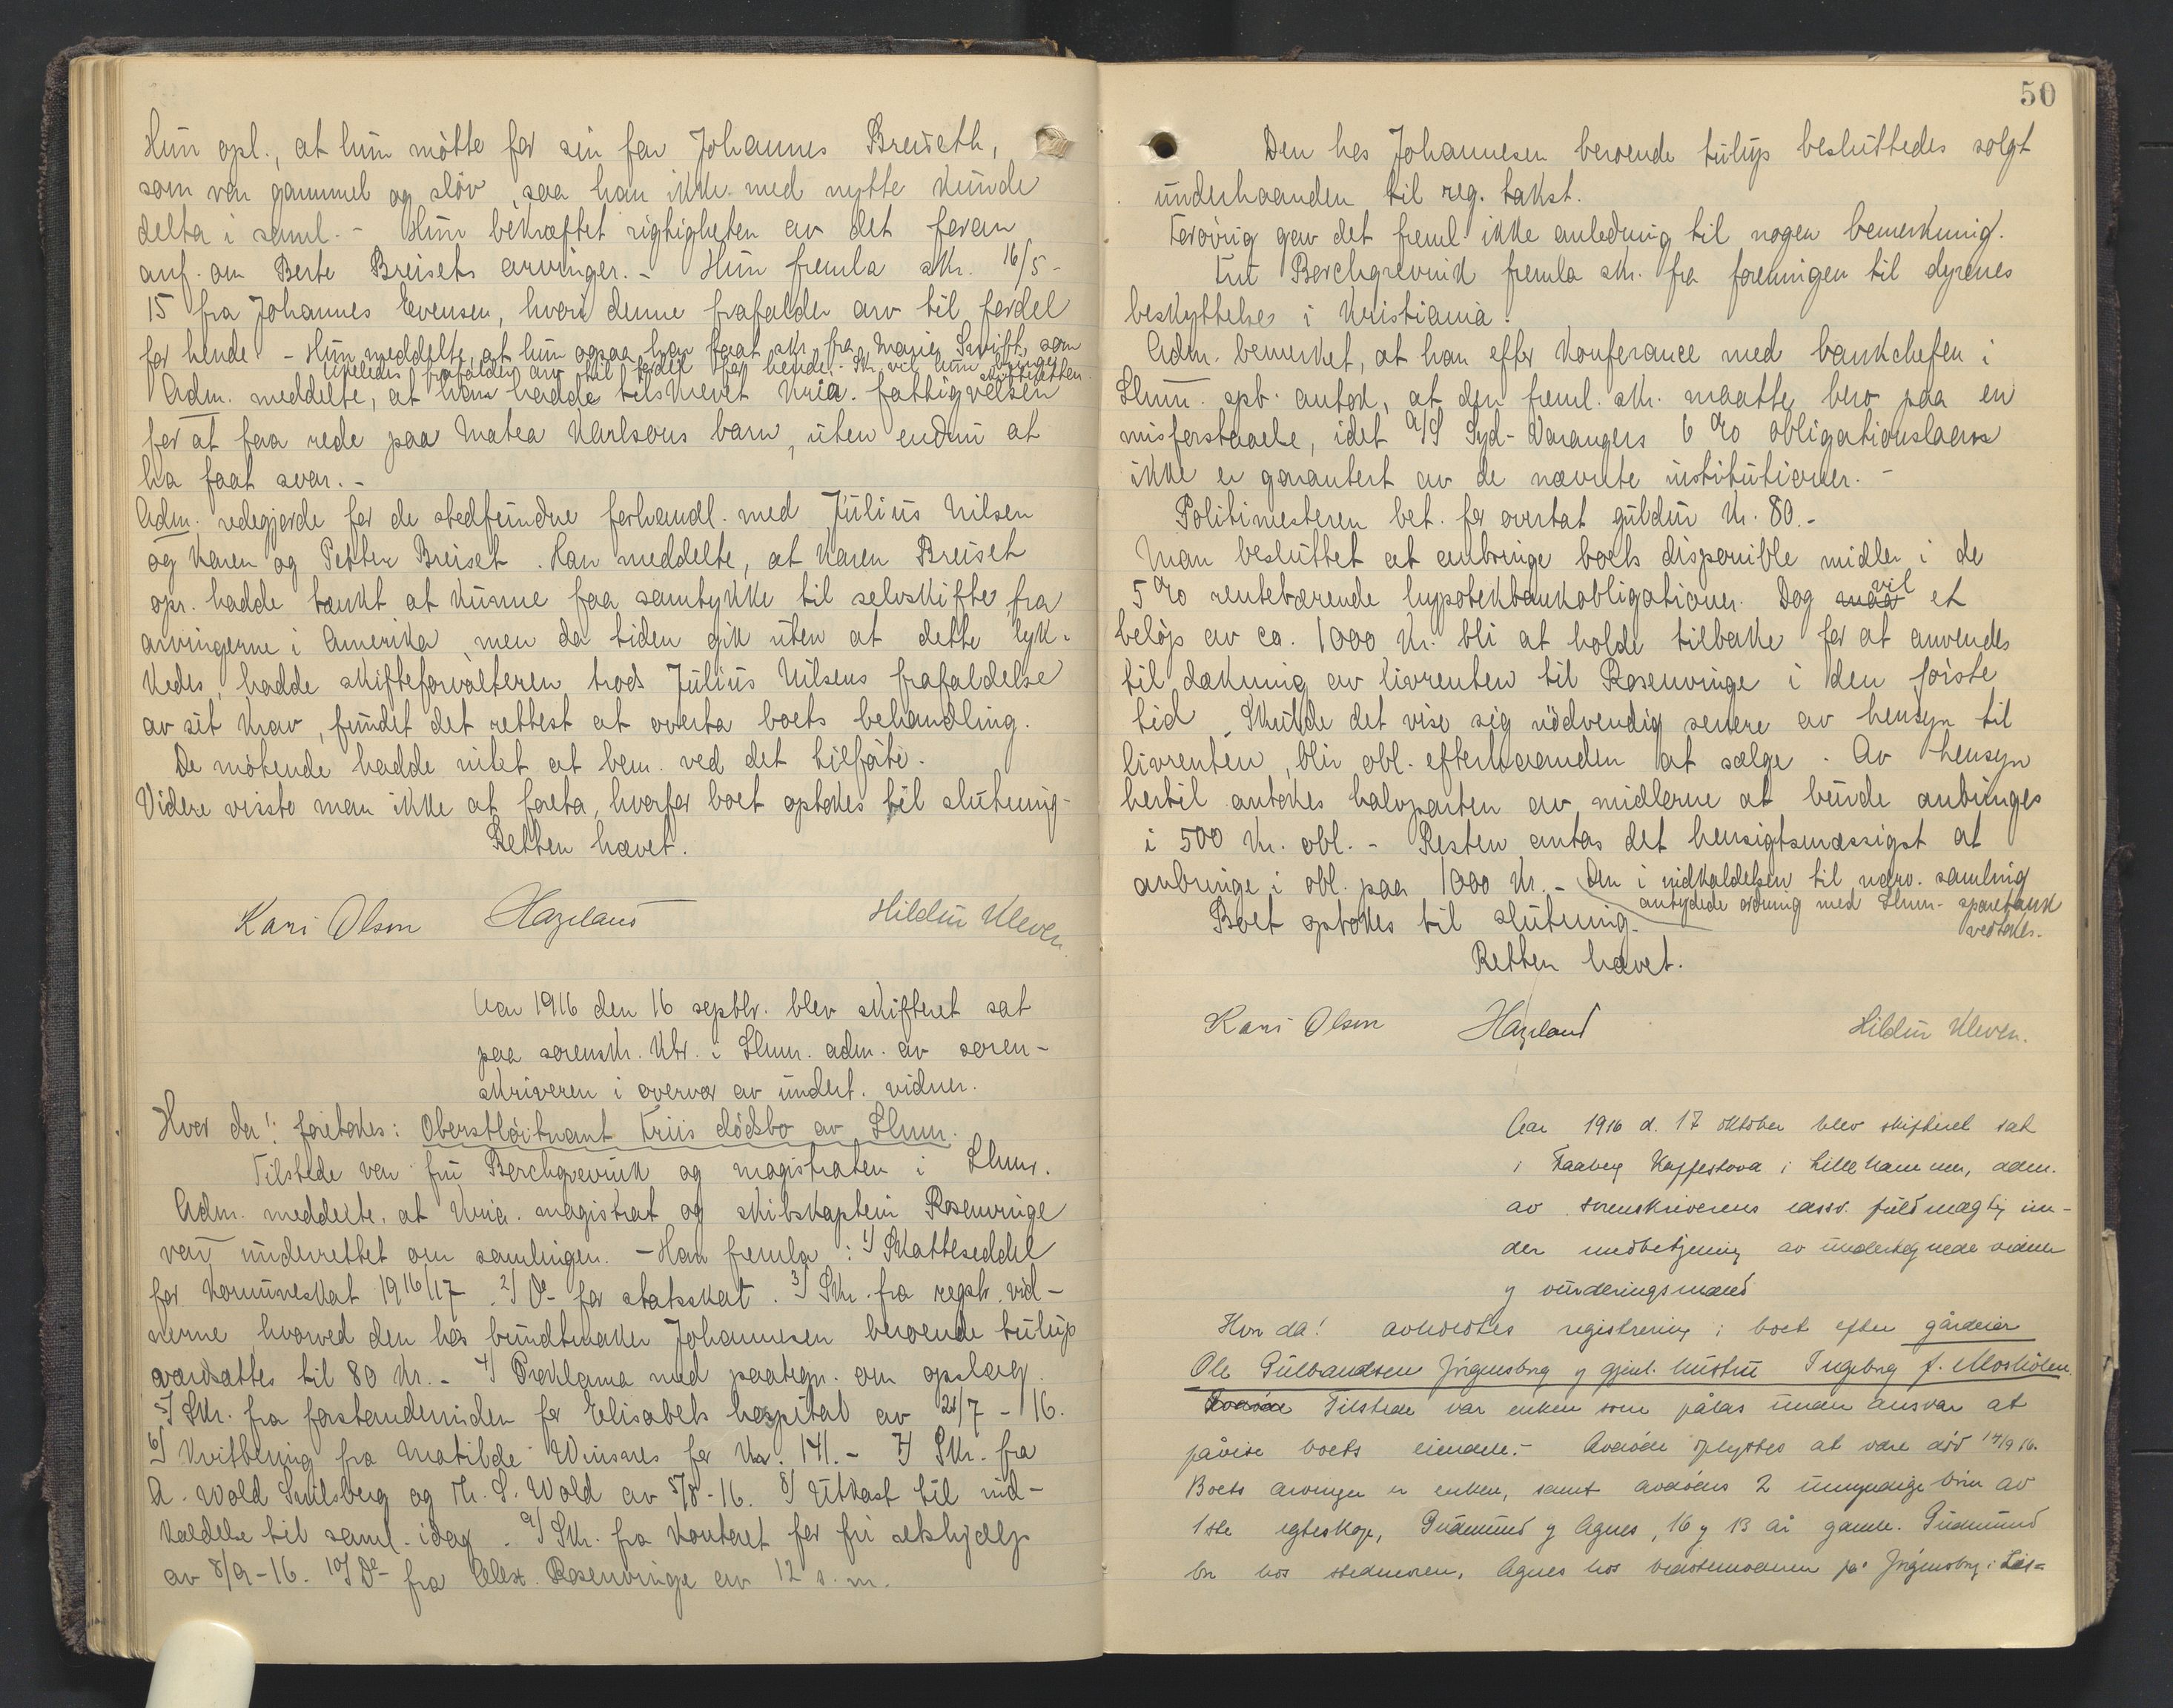 Hun opl., at hun møtte for sin far Johannes Breiseth,
som var gammel og sløv, saa han ikke med nytte kunde
delta i saml. - Hun bekræftet rigtigheten av det foran
anf. om Berte Breisets arvinger. - Hun fremla skr. 16/5 -
15 fra Johannes Evensen, hvori denne frafalder arv til fordel
for hende. - Hun meddelte, at hun ogsaa har faat skr. fra Marie Swift, som
likeledes frafalder arv til fordel for hende. Skr. vil hun bringe
skifteretten.
Adm. meddelte, at han hadde tilskrevet Kria. fattigvæsen
for at faa rede paa Matea Karlsons barn, uten endnu at
ha faat svar. -
Adm. redegjorde for de stedfundne forhandl. med Julius Nilsen
og Karen og Petter Breiset. Han meddelte, at Karen Breiset
opr. hadde tænkt at kunne faa samtykke til selvskifte fra
arvingerne i Amerika, men da tiden gik uten at dette lyk-
kedes, hadde skifteforvalteren trods Julius Nilsens frafaldelse
av sit krav, fundet det rettest at overta boets behandling.
De møtende hadde intet at bem. ved det tilførte.
Videre visste man ikke at foreta, hvorfor boet optokes til slutning -
Retten hævet.
Kari Olson Hazeland Hildur Kleven.
Aar 1916 den 16 septbr. blev skifteret sat
paa sorenskr. ktr. i Lhmr. adm. av soren-
skriveren i overvær av undert. vidner.
Hvor da! foretokes: Oberstløitnant Friis dødsbo av Lhmr.
Tilstede var fru Borchgrevink og magistraten i Lhmr.
Adm. meddelte, at Kria. magistrat og skibskaptein Rosenvinge
var underrettet om samlingen. - Han fremla: 1/ Skatteseddel
for kommuneskat 1916/17. 2/ Do - for statsskat. 3/ Skr. fra registr. vid-
nerne hvorved den hos bundtmaker Johannesen beroende tulup
værdsattes til 80 kr. - 4/ Proklama med paategn. om opslag.
5/ Skr. fra forstanderinden for Elisabets hospital av 21/7 - 16.
6/ Kvittering fra Matilde Winsnes for kr. 141. - 7/ Skr. fra
A. Wold Smilsberg og Th. S. Wold av 5/8 - 16. 8/ Utkast til ind-
kaldelse til saml. idag. 9/ Skr. fra kontoret for fri retshjælp
av 8/9 - 16. 10/ Do - fra Alex. Rosenvinge av 12 s. m.
50
Den hos Johannesen beroende tulup besluttedes solgt
underhaanden til reg. takst.
Forøvrig gav det freml. ikke anledning til nogen bemerkning.
Fru Borchgrevink fremla skr. fra foreningen til dyrenes
beskyttelse i Kristiania.
Adm. bemerket, at han efter konferance med bankchefen i
Lhmr. spb. antok, at den freml. skr. maatte bero paa en
misforstaaelse, idet A/S Syd-Varangers 6 % obligationslaan
ikke er garantert av de nævnte institutioner. -
Politimesteren bet. for overtat guldur kr. 80. -
Man besluttet at anbringe boets disponible midler i de
5 % rentebærende hypotekbankobligationer. Dog maa vil et
beløp av ca. 1000 kr. bli at holde tilbake for at anvendes
til dækning av livrenten til Rosenvinge i den første
tid. Skulde det vise sig nødvendig senere av hensyn til
livrenten, blir obl. efterhaanden at sælge. Av hensyn
hertil antokes halvparten av midlerne at burde anbringes
i 500 kr. obl. - Resten antas det hensigtsmæssigst at
anbringe i obl. paa 1000 kr. - Den i indkaldelsen til nærv. samling
antydede ordning med Lhmr. sparebank
vedtokes.
Boet optokes til slutning.
Retten hævet.
Kari Olson Hazeland Hildur Kleven.
Aar 1916 d. 17 oktober blev skifteret sat
i Faaberg Kaffestova i Lillehammer, adm.
av sorenskriverens edssv. fuldmægtig un-
der medbetjening av undertegnede vidner
og vurderingsmænd
Hvor da! avholdtes registrering i boet efter gårdeier
Ole Gulbrandsen Jørgensborg og gjenl. hustru Ingeborg f. Moshølen.
Avdøde Tilstede var enken som pålas under ansvar at
påvise boets eiendele. - Avdøde oplystes at være død 14/9 16.
Boets arvinger er enken, samt avdødes 2 umyndige barn av
1ste egteskap, Gudmund og Agnes, 16 og 13 år gamle. Gudmund
bor hos stedmoren, Agnes hos bedstemoren på Jørgensborg i